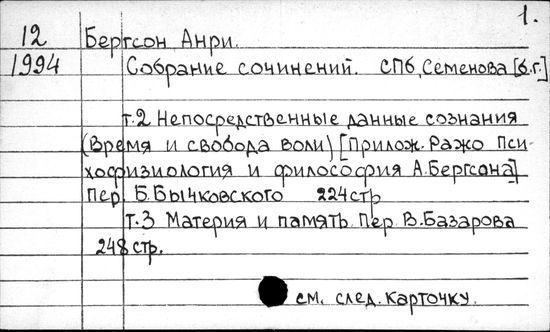 1.
12 Бергсон Анри.
1994 Собрание сочинений. СПб, Семенова [б.г.]
т.2 Непосредственные данные сознания
(Время и свобода воли) [Прилож. Ражо Пси
хофизиология и философия А.Бергсона]
Пер. Б.Бычковского 224стр
т.3 Материя и память. Пер В.Базарова
248 стр.
см. след. карточку.